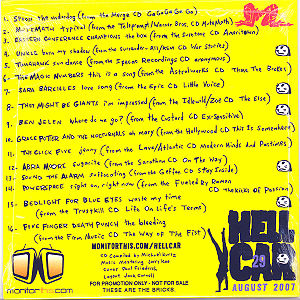 1. SPOON the underdog (from the Merge CD Ga Ga Ga Ga Ga)
2. MUTEMATH typical (from the Teleprompt/Warner Bros. CD MuteMath)
3. EASTERN CONFERENCE CHAMPIONS the box (from the Suretone CD Ameritown)
4. UNKLE burn my shadow (from the Surrender All/Ryko CD War Stories)
5. TUNARUNK sun dance (from the Epacos Recordings CD anonymous)
6. THE MAGIC NUMBERS this is a song (from the Astralwerks CD Those The Brokes)
7. SARA BAREILLES love song (from the Epic CD Little Voice)
8. THEY MIGHT BE GIANTS i'm impressed (from the Idlewild/Zoe CD The Else)
9. BEN JELEN where do we go? (from the Custard CD Ex-Sensitive)
10. GRACE POTTER AND THE NOCTURNALS ah mary (from the Hollywood CD This Is Somewhere)
11. THE CLICK FIVE jenny (from the Lava/Atlantic CD Modern Minds and Pastimes)
12. ABRA MOORE sugarite (from the Sarathan CD On The Way)
13. SOUND THE ALARM suffocating (from the Geffen CD Stay Inside)
14. POWERSPACE right on, right now (from the Fueled by Ramen CD The Kicks of Passion)
15. BEDLIGHT FOR BLUE EYES waste my time
(from the Trustkill CD Life On Life's Terms)
16. FIVE FINGER DEATH PUNCH the bleeding
(from the Firm Music CD The Way of The Fist)
MONITORTHIS.COM/HELLCAR
FOR PROMOTION ONLY - NOT FOR SALE
THESE ARE THE BRICKS.
monitorthis.com
HELL
CAR
29
AUGUST 2007